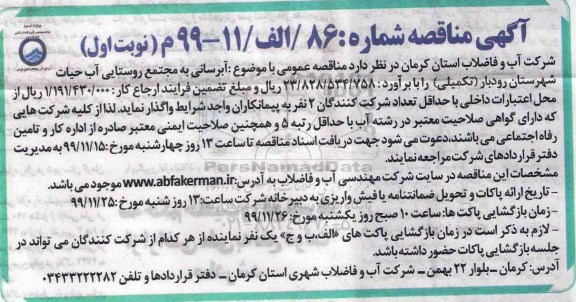 آگهی مناقصه شماره: ۸۶ /الف/۱۱-۹۹ م (نوبت اول)
شرکت آب و فاضلاب استان کرمان در نظر دارد مناقصه عمومی با موضوع : آبرسانی به مجتمع روستایی آب حیات
شهرستان رودبار (تکمیلی) را با برآورد : ۲۳/۸۲۸/۵۳۶/۷۵۸ ریال و مبلغ تضمین فرایند ارجاع کار : ۱/۱۹۱/۴۳۰/۰۰۰ ریال از
محل اعتبارات داخلی با حداقل تعداد شرکت کنندگان ۲ نفر به پیمانکاران واجد شرایط واگذار نماید. لذا از کلیه شرکت هایی
که دارای گواهی صلاحیت معتبر در رشته آب با حداقل رتبه ۵ و همچنین صلاحیت ایمنی معتبر صادره از اداره کار و تامین
رفاه اجتماعی می باشند، دعوت می شود جهت دریافت اسناد مناقصه تا ساعت ۱۳ روز چهارشنبه مورخ: ۹۹/۱۱/۱۵ به مدیریت
دفتر قراردادهای شرکت مراجعه نمایند.
مشخصات این مناقصه در سایت شرکت مهندسی آب و فاضلاب به آدرس: www.abfakerman.ir موجود می باشد.
- تاریخ ارائه پاکات و تحویل ضمانتنامه یا فیش واریزی به دبیرخانه شرکت ساعت: ۱۳ روز شنبه مورخ: ۹۹/۱۱/۲۵
- زمان بازگشایی پاکت ها: ساعت ۱۰ صبح روز یکشنبه مورخ: ۹۹/۱۱/۲۶
- لازم به ذکر است در زمان بازگشایی پاکت های «الف،ب و ج» یک نفر نماینده از هر کدام از شرکت کنندگان می تواند در
جلسه بازگشایی پاکات حضور داشته باشد.
آدرس: کرمان -بلوار ۲۲ بهمن – شرکت آب و فاضلاب شهری استان کرمان – دفتر قراردادها و تلفن ۰۳۴۳۳۲۲۲۲۸۲